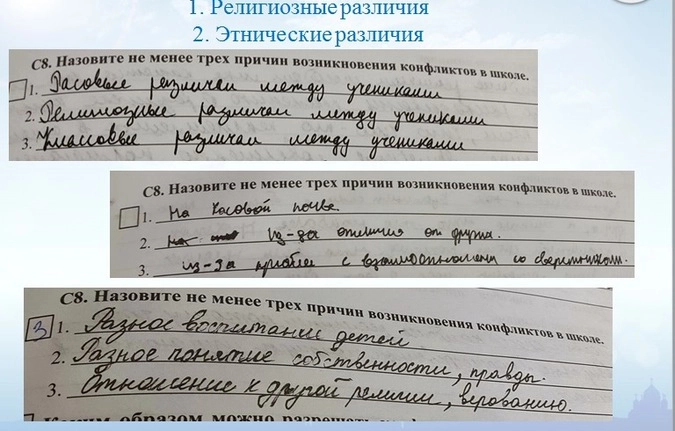 1. Религиозные различия
2. Этнические различия
С8. Назовите не менее трех причин возникновения конфликтов в школе.
1. Расовые различаи между учениками
2. Религиозные различаи между учениками
3. Классовые различаи между учениками
С8. Назовите не менее трех причин возникновения конфликтов в школе.
1. На расовой почве
2. из-за отличия от других.
3. из-за проблем с взаимоотношениями со сверстниками.
С8. Назовите не менее трех причин возникновения конфликтов в школе.
3 1. Разное воспитание детей
2. Разное понятие собственности, правды.
3. Отношение к другой религии, верованию.
образом можно